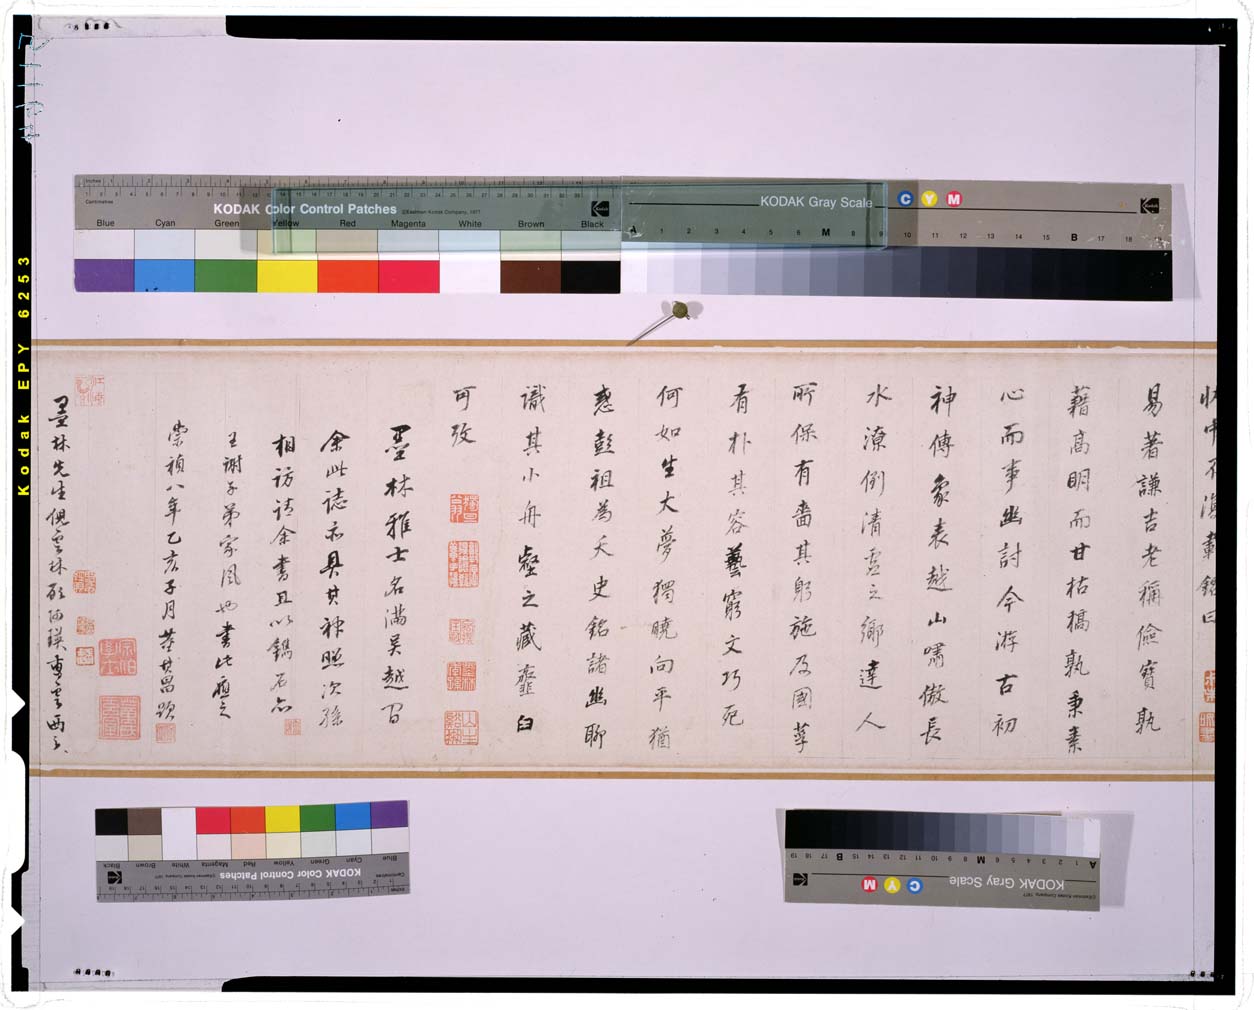 KODAK Color Control Patches
©Eastman Kodak Company, 1977
Blue Cyan Green Yellow Red Magenta White Brown Black
KODAK Gray Scale
C Y M
A 1 2 3 4 5 6 M 8 9 10 11 12 13 14 15 B 17 18 19
Kodak EPY 6253
易著謙吉老稱儉寶孰
藉高明而甘枯槁孰秉素
心而事幽討今游古初
神傳象表越山嘯傲長
水潦倒清虛之鄉達人
所保有嗇其躬施及國孳
看朴其容藝窮文巧死
何如生大夢獨曉向平猶
惑彭祖為夭史銘諸幽聊
識其小舟壑之藏齏臼
可攷
墨林雅士名滿吳越間
余此誌亦具其神照次孫
相訪請余書且以鐫石亦
王謝子弟家風也書此應之
崇禎八年乙亥子月董其昌跋
KODAK Color Control Patches
Blue Cyan Green Yellow Red Magenta White Brown Black
KODAK Gray Scale
C Y M
A 1 2 3 4 5 6 M 8 9 10 11 12 13 14 15 B 17 18 19